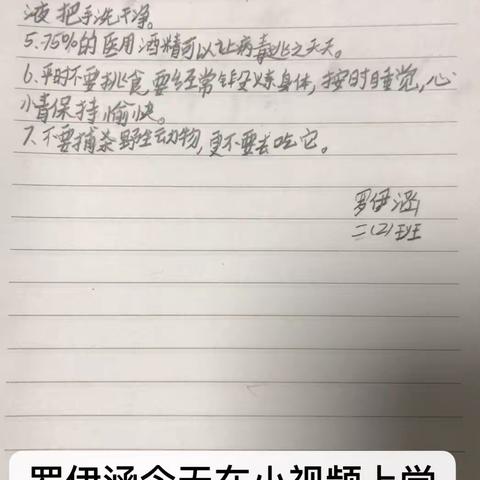 液把手洗干净。
5.75%的医用酒精可以让病毒逃之夭夭。
6.平时不要挑食,要经常锻炼身体,按时睡觉,心
情保持愉快。
7.不要捕杀野生动物,更不要去吃它。
罗伊涵
二(2)班
罗伊涵今天在小视频上学